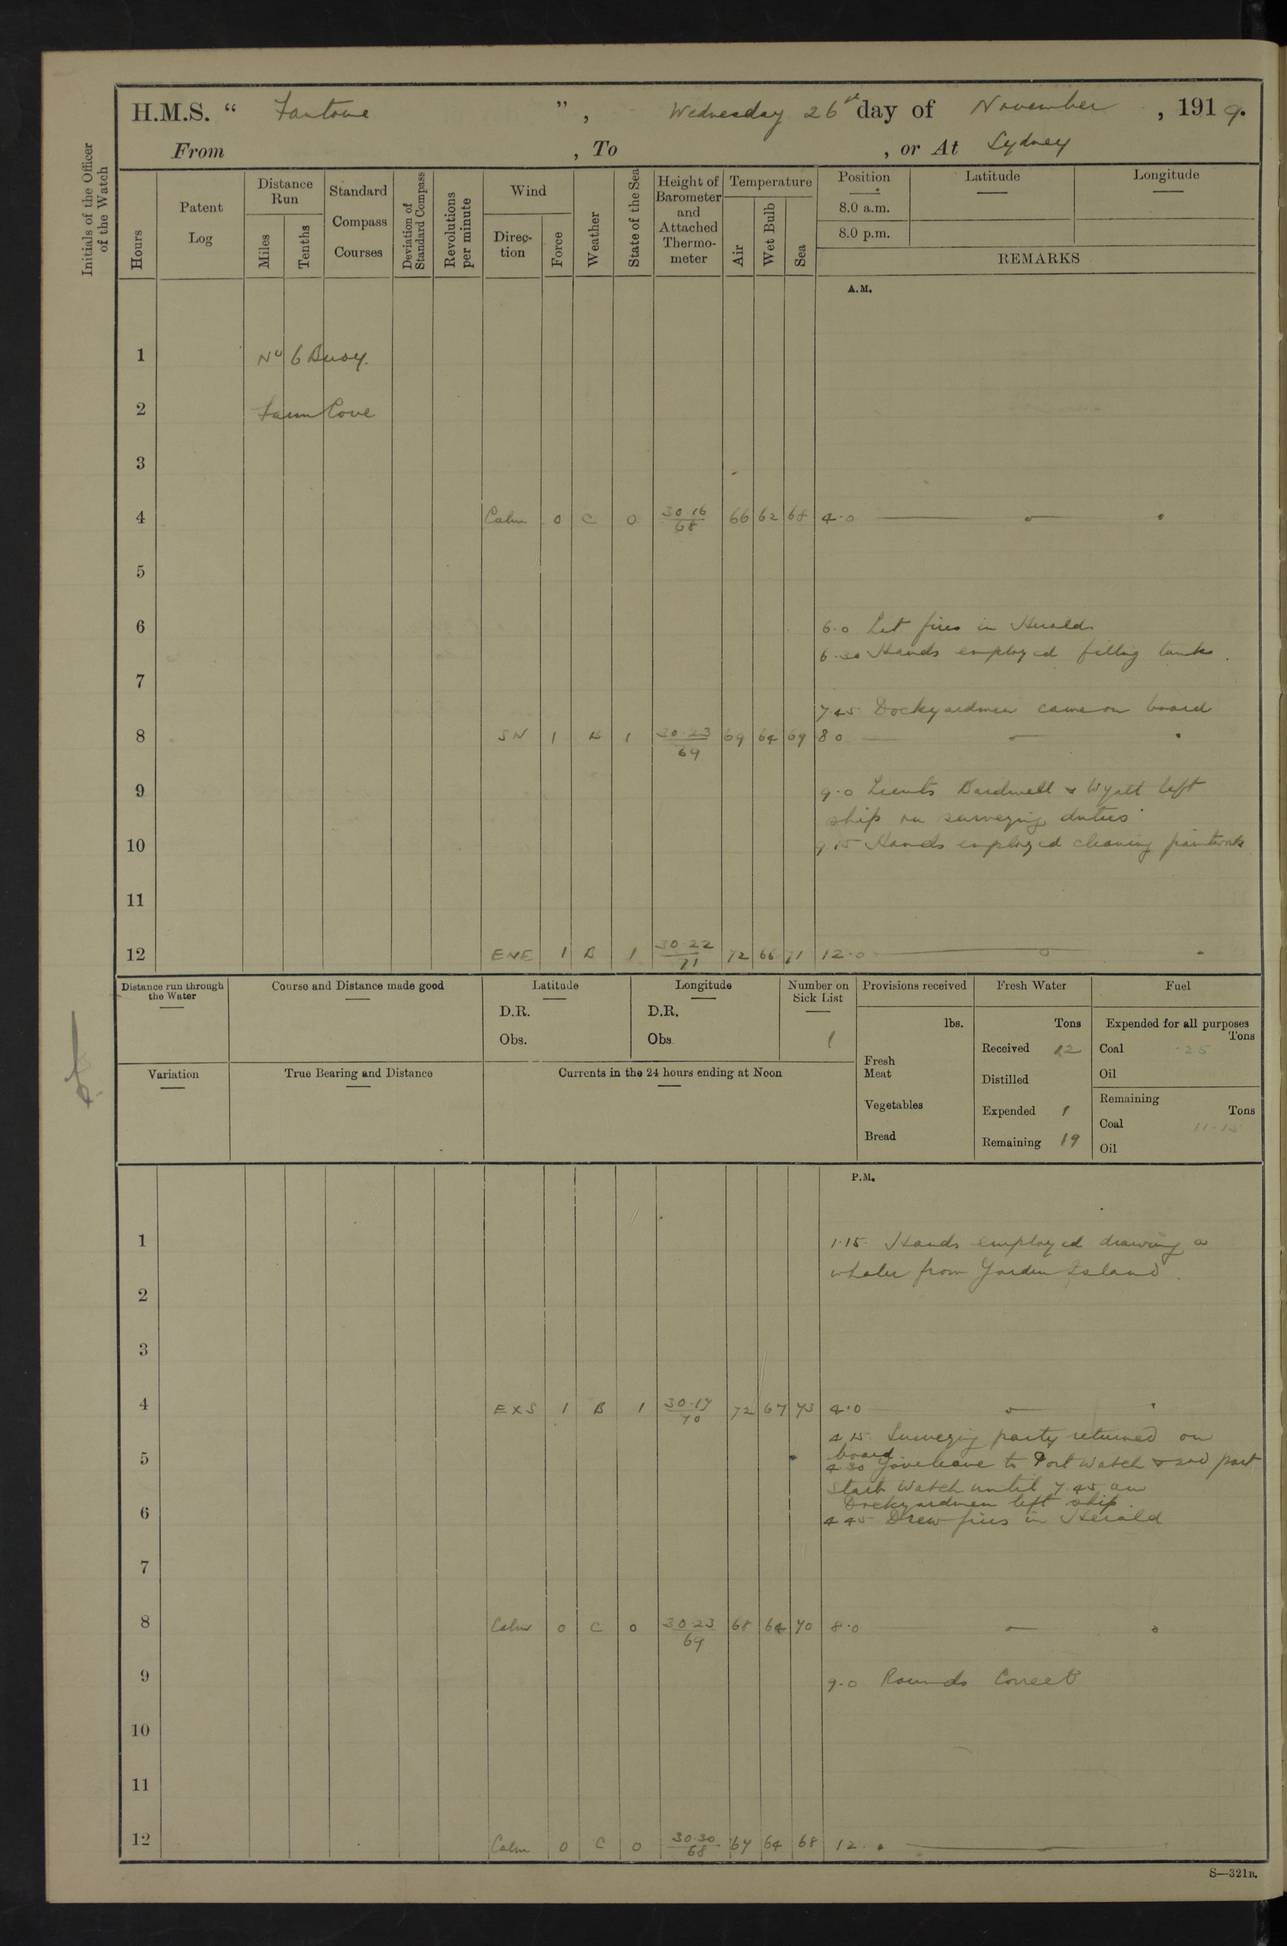 H.M.S. “ Fantome ” , Wednesday 26th day of November , 1919.
From , To , or At Sydney
Initials of the Officer of the Watch
Hours
Patent Log
Distance Run
Miles
Tenths
Standard Compass Courses
Deviation of Standard Compass
Revolutions per minute
Wind
Direction
Force
Weather
State of the Sea
Height of Barometer and Attached Thermometer
Temperature
Air
Wet Bulb
Sea
Position
8.0 a.m.
8.0 p.m.
Latitude
Longitude
REMARKS
A.M.
1 No 6 Buoy.
2 Farm Cove
3
4 Calm 0 C 0 30.16/68 66 62 68 4.0
5
6 6.0 Let fires in Herald
6.30 Hands employed filling tanks.
7
7.45 Dockyardmen came on board
8 1 B 1 30.23/69 69 64 69 8.0
9 9.0 Lieuts Bardwell & Wyatt left
ship on surveying duties
10 9.15 Hands employed cleaning paintwork
11
12 ENE 1 B 1 30.22/71 72 66 71 12.0
Distance run through the Water
Course and Distance made good
Latitude
D.R.
Obs.
Longitude
D.R.
Obs
Number on Sick List
1
Provisions received
lbs.
Fresh Meat
Vegetables
Bread
Fresh Water
Tons
Received 12
Distilled
Expended 1
Remaining 19
Fuel
Expended for all purposes
Tons
Coal .25
Oil
Remaining
Tons
Coal 11.15
Oil
Variation
True Bearing and Distance
Currents in the 24 hours ending at Noon
P.M.
1 1.15 Hands employed drawing a
whaler from Garden Island.
2
3
4 ExS 1 B 1 30.17/70 72 67 73 4.0
4.15 Surveying party returned on
board
5 4.30 Gave leave to Port Watch & 2nd part
Starb Watch until 7.45 am
Dockyardmen left ship.
6 4.45 Drew fires in Herald
7
8 Calm 0 C 0 30.23/69 68 64 70 8.0
9 9.0 Rounds Correct
10
11
12 Calm 0 C 0 30.30/68 67 64 68 12.0
S—321B.